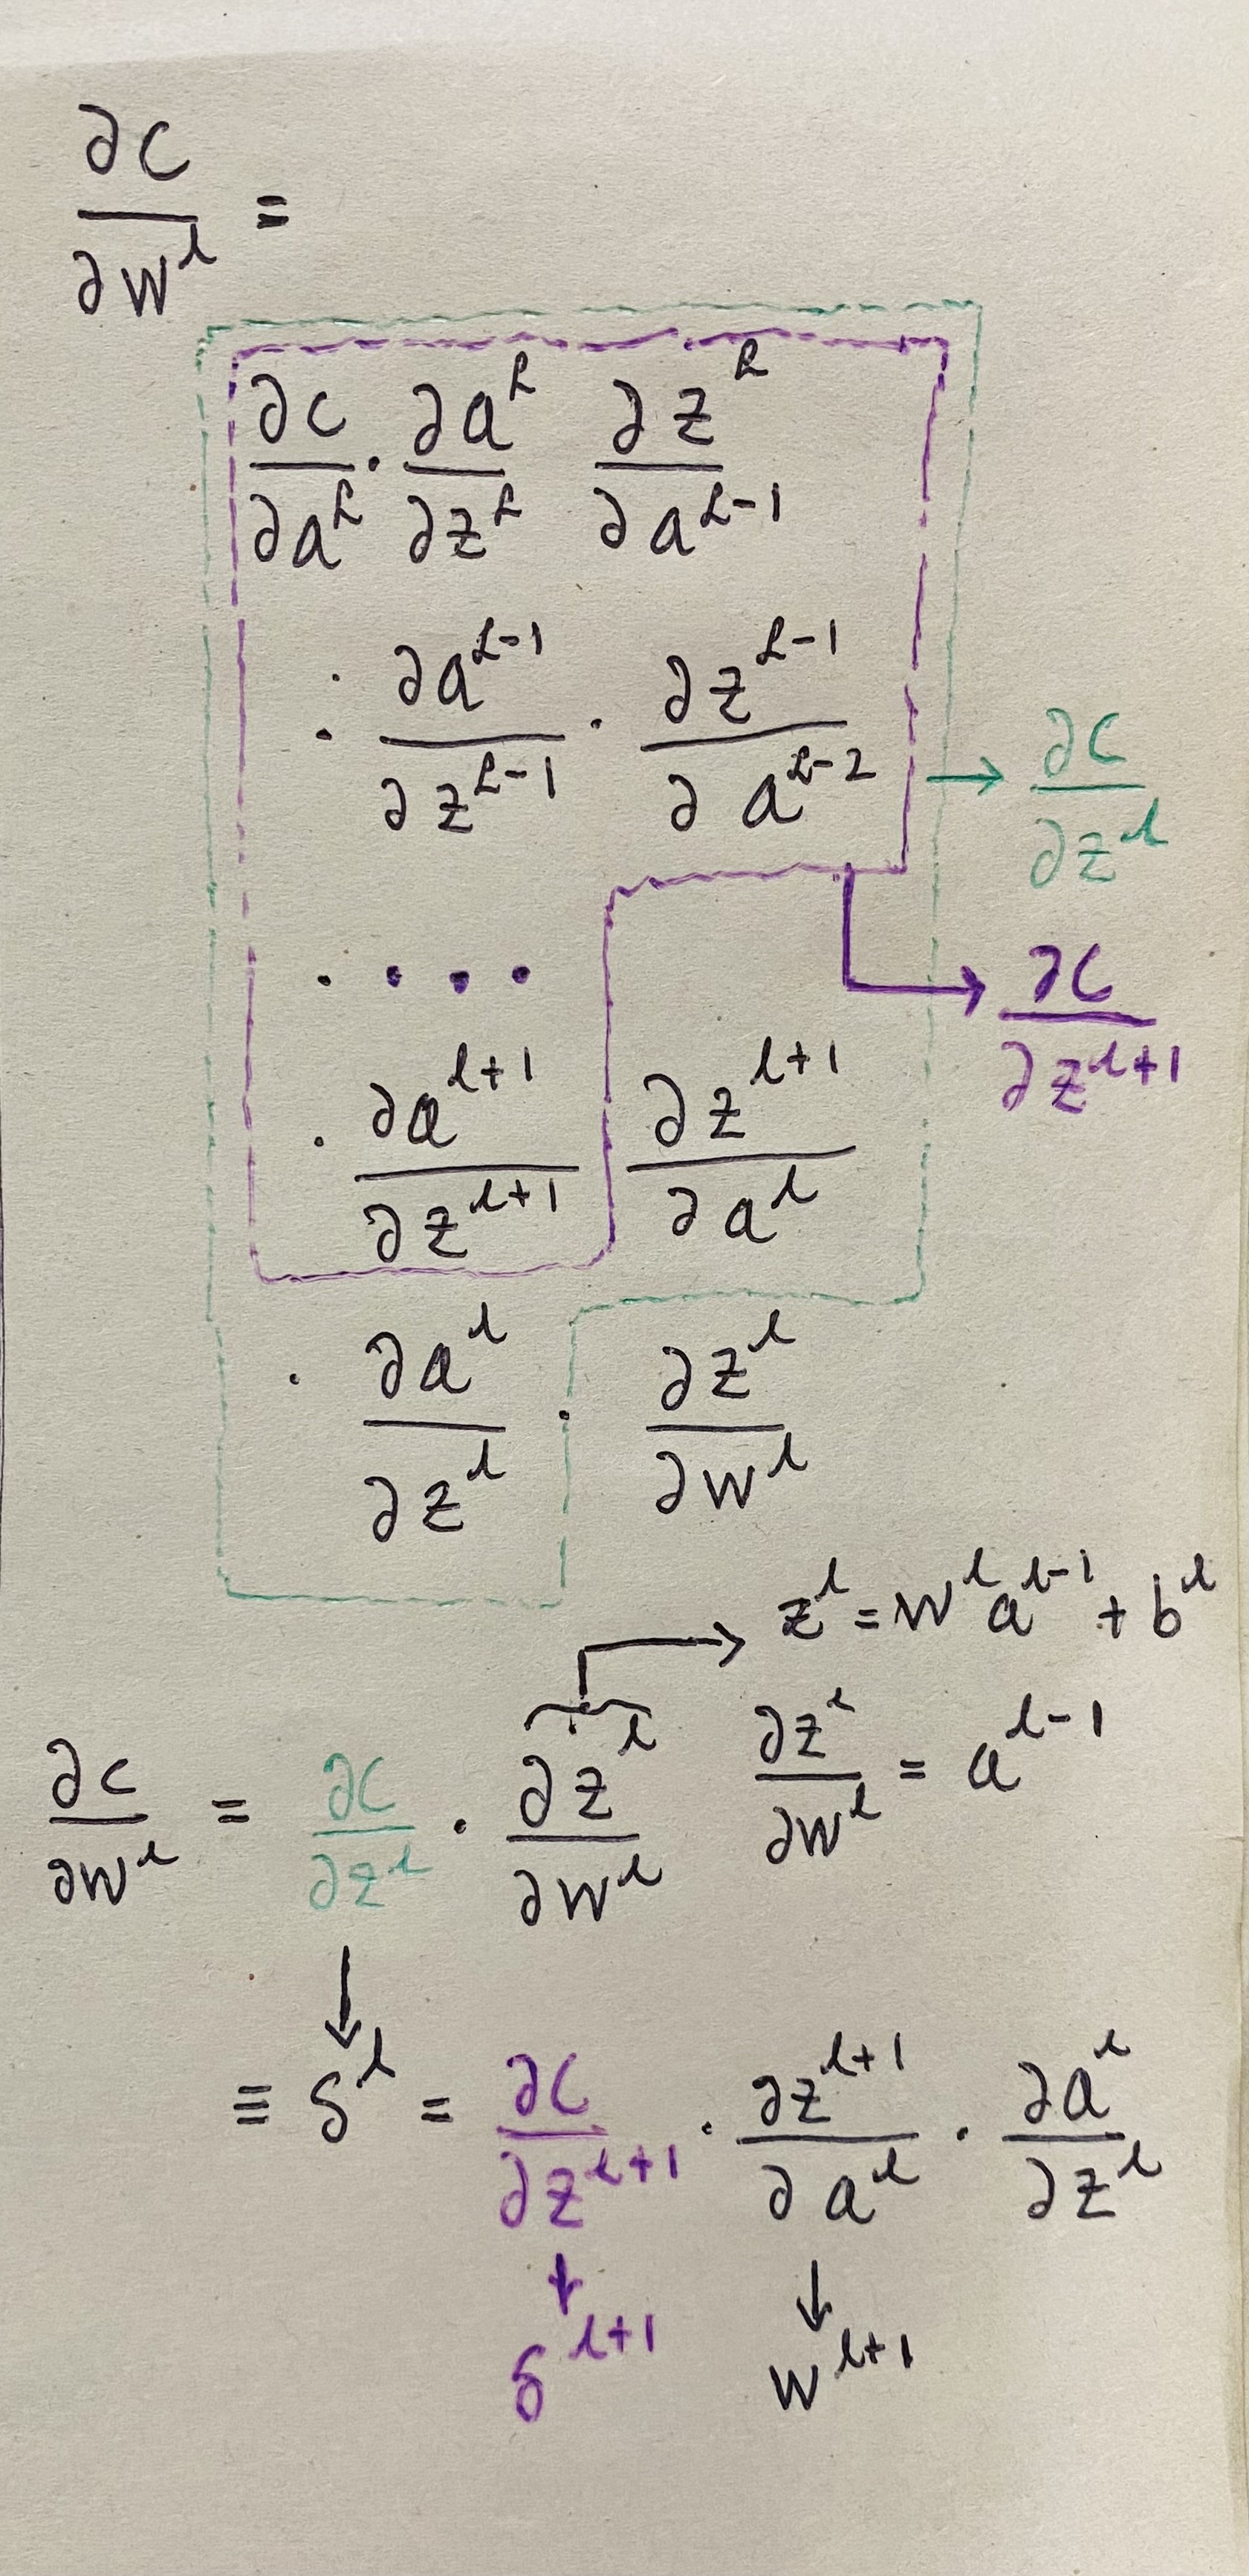 ∂C/∂w^l =
∂C/∂a^L · ∂a^L/∂z^L ∂z^L/∂a^{L-1}
· ∂a^{L-1}/∂z^{L-1} · ∂z^{L-1}/∂a^{L-2}
→ ∂C/∂z^l
· · · ·
→ ∂C/∂z^{l+1}
· ∂a^{l+1}/∂z^{l+1} ∂z^{l+1}/∂a^l
· ∂a^l/∂z^l · ∂z^l/∂w^l
→ z^l = w^l a^{l-1} + b^l
∂C/∂w^l = ∂C/∂z^l · ∂z^l/∂w^l ∂z^l/∂w^l = a^{l-1}
↓
≡ δ^l = ∂C/∂z^{l+1} · ∂z^{l+1}/∂a^l · ∂a^l/∂z^l
↓ ↓
δ^{l+1} w^{l+1}